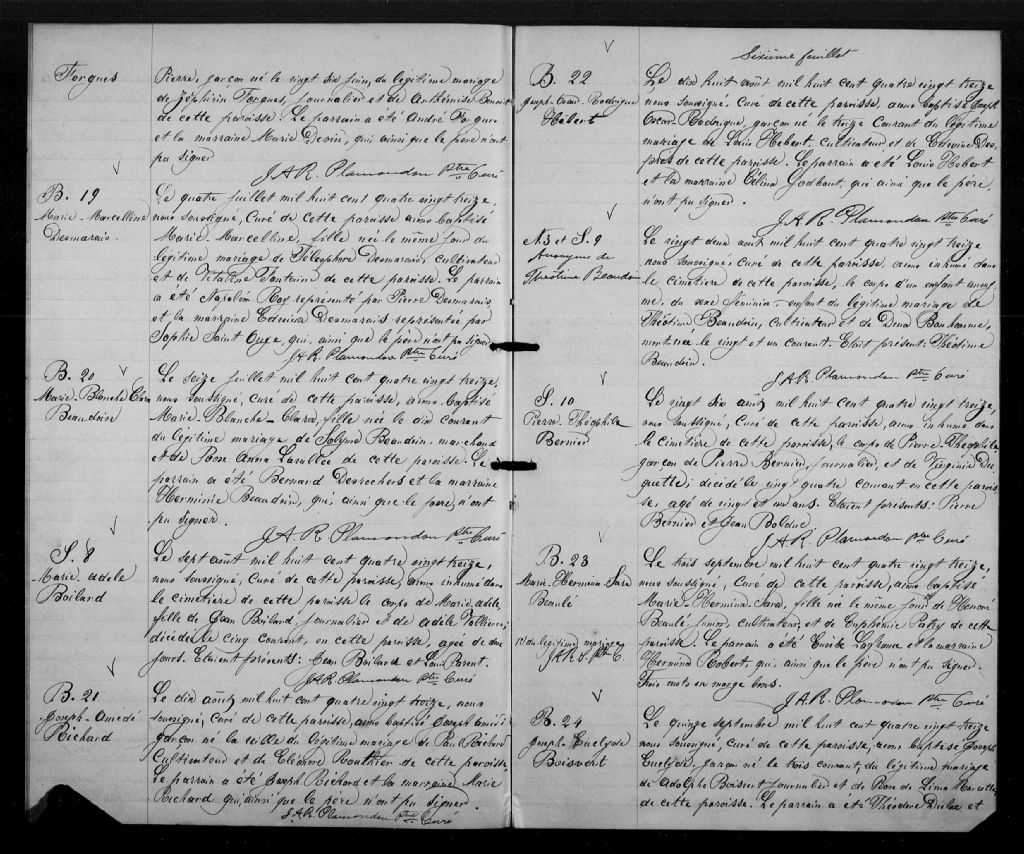 Forgues
Pierre, garçon né le vingt six juin, du légitime mariage
de Zéphirin Forgues, journalier et de Anthémise Benoit
de cette paroisse. Le parrain a été André Forgues
et la marraine Marie qui ainsi que le père n'ont
pu signer
J.A.R. Plamondon Ptre Curé
B. 19
Marie-Marcelline
Desmarais
Le quatre juillet mil huit cent quatre vingt treize,
nous soussigné, curé de cette paroisse avons baptisé
Marie-Marcelline, fille née le même jour du
légitime mariage de Télesphore Desmarais, cultivateur
et de Fontaine de cette paroisse. Le parrain
a été Napoléon Roy représenté par Pierre Desmarais
et la marraine Edwina Desmarais représentée par
Sophie Saint Onge, qui, ainsi que le père n'ont pu signer
J.A.R. Plamondon Ptre Curé
B. 20
Marie-Blanche Clara
Beaudoin
Le seize juillet mil huit cent quatre vingt treize,
nous soussigné, curé de cette paroisse, avons baptisé
Marie Blanche-Clara, fille née le dix courant
du légitime mariage de Solyme Beaudoin, marchand
et de Rose Anna Lavallée de cette paroisse. Le
parrain a été Bernard Desrochers et la marraine
Herminie Beaudoin, qui, ainsi que le père, n'ont
pu signer.
J.A.R. Plamondon Ptre Curé
S. 8
Marie-adèle
Boilard
Le sept août mil huit cent quatre vingt treize,
nous soussigné, Curé de cette paroisse, avons inhumé dans
le cimetière de cette paroisse le corps de Marie-adèle,
fille de Jean Boilard, journalier et de adèle
décédée le cinq courant, en cette paroisse, agée de deux
jours. Etaient présents: Jean Boilard et Louis Parent.
J.A.R. Plamondon Ptre Curé
B. 21
Joseph-Amédé
Richard
Le dix août mil huit cent quatre vingt treize, nous
soussigné, curé de cette paroisse, avons baptisé Joseph Amédé
garçon né la veille du légitime mariage de Paul Richard
Cultivateur et de Eléonore Routhier de cette paroisse
Le parrain a été Joseph Richard et la marraine Marie
Richard qui, ainsi que le père n'ont pu signer.
J.A.R. Plamondon Ptre Curé
Sixième feuillet
B. 22
Joseph-Oscar-Rodrigue
Hébert
Le dix huit août mil huit cent quatre vingt treize
nous soussigné, Curé de cette paroisse, avons baptisé Joseph
Oscar Rodrigue, garçon né le treize Courant du légitime
mariage de Louis Hebert, cultivateur et de Edwina Des-
près de cette paroisse. Le parrain a été Louis Hebert
et la marraine Célina Godbout, qui ainsi que le père,
n'ont pu signer.
J.A.R. Plamondon Ptre Curé
N3 et S. 9
Anonyme de
Théotime Beaudoin
Le vingt deux août mil huit cent quatre vingt treize
nous soussigné, curé de cette paroisse, avons inhumé dans
le cimetière de cette paroisse, le corps d'un enfant anony-
me, du sexe féminin, enfant du légitime mariage de
Théotime Beaudoin, cultivateur et de Dina Bonhomme,
mort-née le vingt et un courant. Etait présent: Théotime
Beaudoin.
J.A.R. Plamondon Ptre Curé
S. 10
Pierre-Théophile
Bernier
Le vingt six août mil huit cent quatre vingt treize,
nous soussigné, Curé de cette paroisse, avons inhumé dans
le cimetière de cette paroisse, le corps de Pierre-Théophile,
garçon de Pierre Bernier, journalier, et de Virginie
décédé le vingt quatre courant en cette parois-
se, agé de vingt et un ans. Etaient présents: Pierre
Bernier et Jean Bolduc
J.A.R. Plamondon Ptre Curé
B. 23
Marie-Hermina Sara
Beaulé
Le trois septembre mil huit cent quatre vingt treize,
nous soussigné, Curé de cette paroisse, avons baptisé
Marie-Hermina-Sara, fille née le même jour de Honoré
Beaulé junior, cultivateur, et de Euphémie de cette
paroisse. Le parrain a été Eusèbe Lagrange et la marraine
Hermina Robert, qui, ainsi que le père n'ont pu signer.
Trois mots en marge bons.
du légitime mariage
J.A.R.P. Ptre C.
J.A.R. Plamondon Ptre Curé
B. 24
Joseph-Euclyde
Boisvert
Le quinze septembre mil huit cent quatre vingt treize
nous soussigné, curé de cette paroisse, avons baptisé Joseph
Euclyde, garçon né le trois courant, du légitime mariage
de Adolphe Boisvert journalier et de Rose de Lima Marcotte
de cette paroisse. Le parrain a été Théodore Duclos et